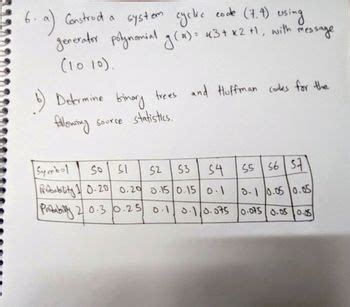 6. a) Construct a system cyclic code (7,4) using
generator polynomial g(x) = x3 + x2 +1, with message
(10 10).
b) Determine binary trees and Huffman codes for the
following source statistics.
Symbol S0 S1 S2 S3 S4 S5 S6 S7
Probability 1 0.20 0.20 0.15 0.15 0.1 0.1 0.05 0.05
Probability 2 0.3 0.25 0.1 0.1 0.075 0.075 0.05 0.05